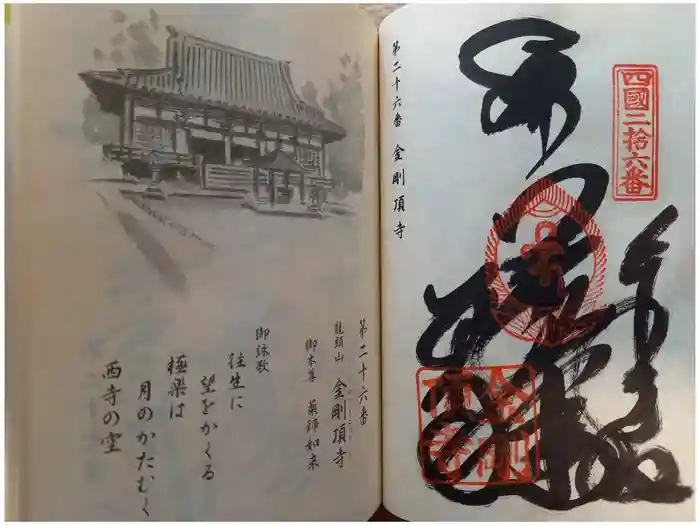 四國二拾六番
第二十六番 金剛頂寺
金剛
頂寺
第二十六番
龍頭山 金剛頂寺
御本尊 薬師如来
御詠歌
往生に
望をかくる
極楽は
月のかたむく
西寺の空